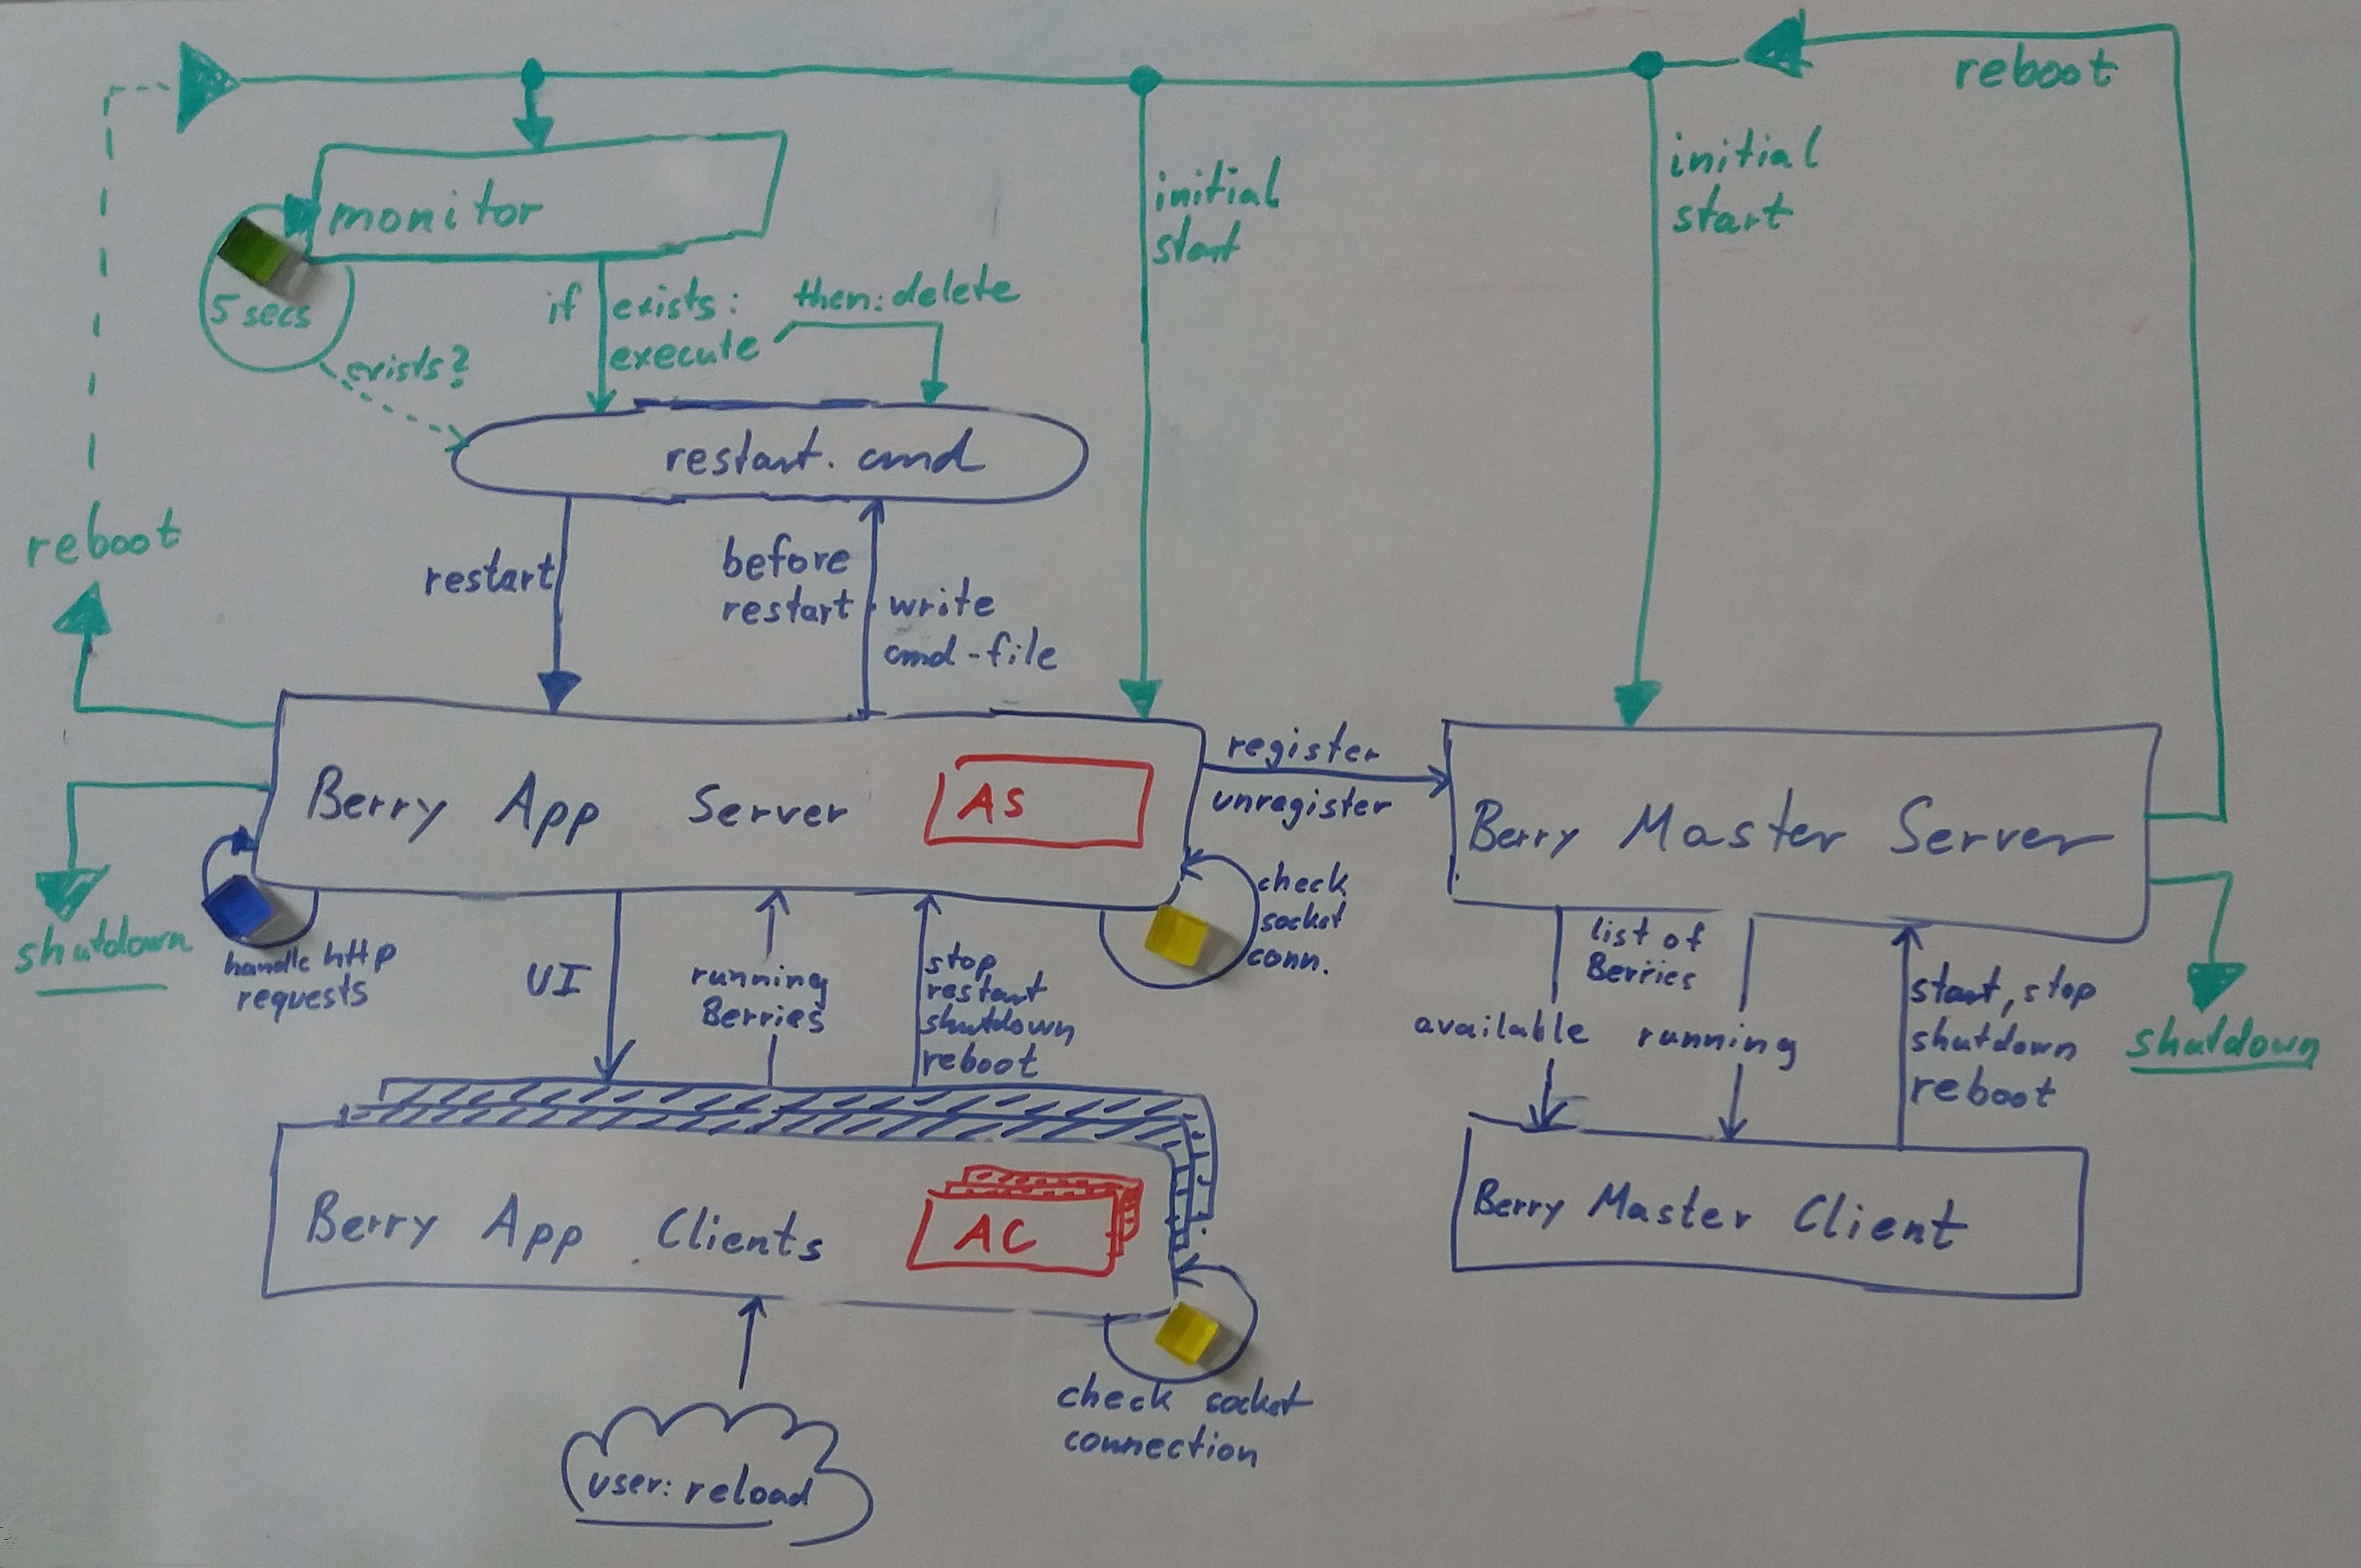 reboot
monitor
initial
start
initial
start
5 secs
if exists:
execute
then: delete
exists?
restart.cmd
reboot
restart
before
restart
write
cmd-file
Berry App Server
AS
register
unregister
Berry Master Server
shutdown
handle http
requests
check
socket
conn.
UI
running
Berries
stop
restart
shutdown
reboot
list of
Berries
available
running
start, stop
shutdown
reboot
shutdown
Berry App Clients
AC
Berry Master Client
check socket
connection
user: reload